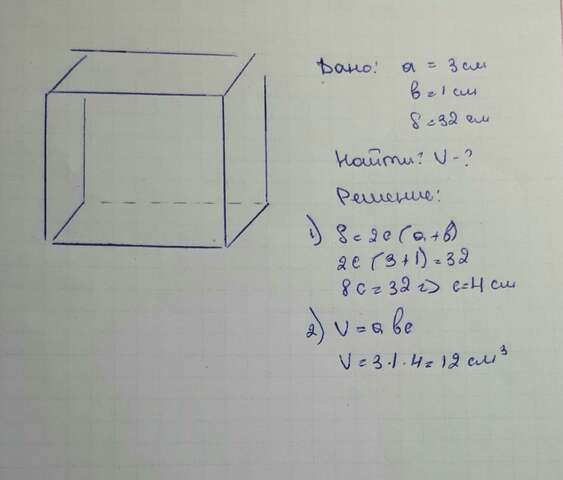 Дано: a = 3 см
в = 1 см
S = 32 см
Найти: V - ?
Решение:
1) S = 2c (a+b)
2c (3+1) = 32
8c = 32 => c = 4 см
2) V = a b c
V = 3·1·4 = 12 см³